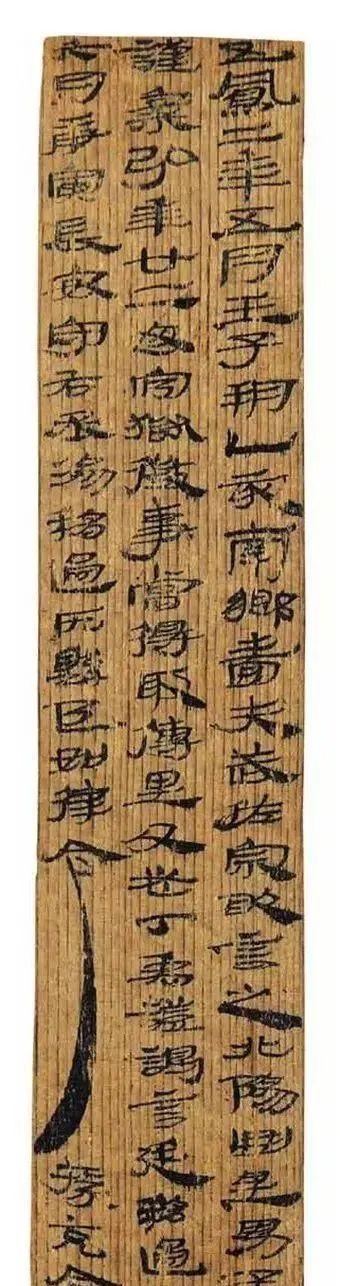 五鳳二年五月壬子朔乙亥南鄉嗇夫武佐宗敢言之北陽曲里男子
謹案弘年廿二毋官獄徵事當得取傳里父老丁禹證謁言廷移過
六月庚寅長安守右丞湯移過所縣邑如律令 掾充令